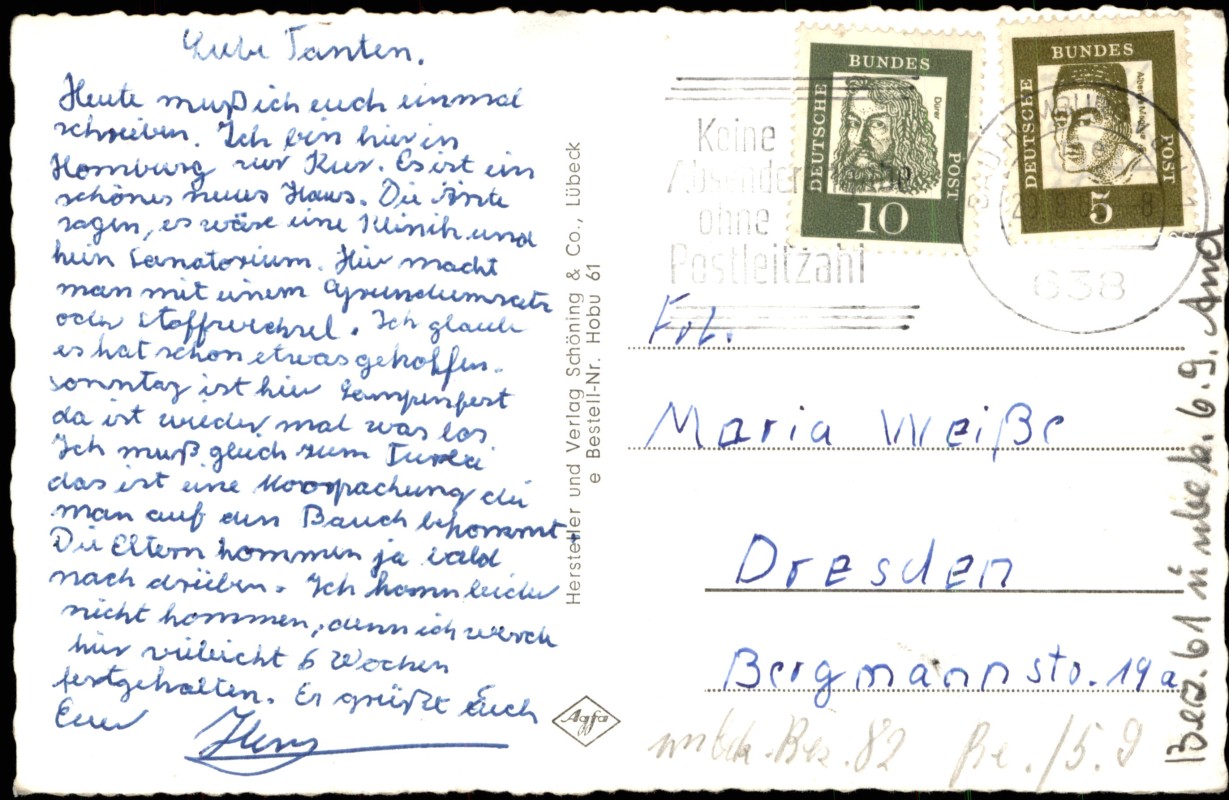 Liebe Tanten.
Heute muß ich euch einmal
schreiben. Ich bin hier in
Homburg zur Kur. Es ist ein
schönes neues Haus. Die Ärzte
sagen, es wäre eine Klinik und
kein Sanatorium. Hier macht
man mit einem Grundumsatz
oder Stoffwechsel. Ich glaube
es hat schon etwas geholfen.
Sonntag ist hier Lampenfest
da ist wieder mal was los.
Ich muß gleich zum
das ist eine Moorpackung die
man auf den Bauch bekommt
Die Eltern kommen ja bald
nach drüben. Ich kann leider
nicht kommen, denn ich werde
hier vieleicht 6 Wochen
festgehalten. Es grüßt Euch
Euer
Hersteller und Verlag Schöning & Co., Lübeck
e Bestell-Nr. Hobu 61
Agfa
Keine
Absender
ohne
Postleitzahl
DEUTSCHE BUNDES POST
Dürer
10
DEUTSCHE BUNDES POST
5
638
Frl.
Maria Weiße
Dresden
Bergmannstr. 19a
unbek. Bez. 82 Be. 15.9
Bez. 61 unbek. 6.9.